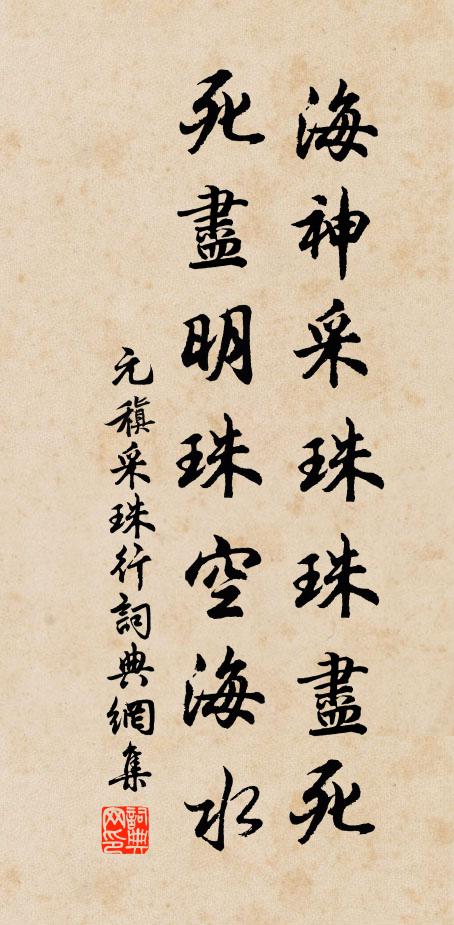 海神采珠珠盡死
死盡明珠空海水
元稹采珠行詞典網集
詞典網印